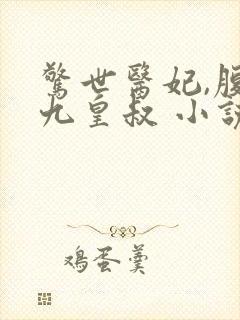 驚世醫妃,腹
九皇叔 小說
鸡蛋羹